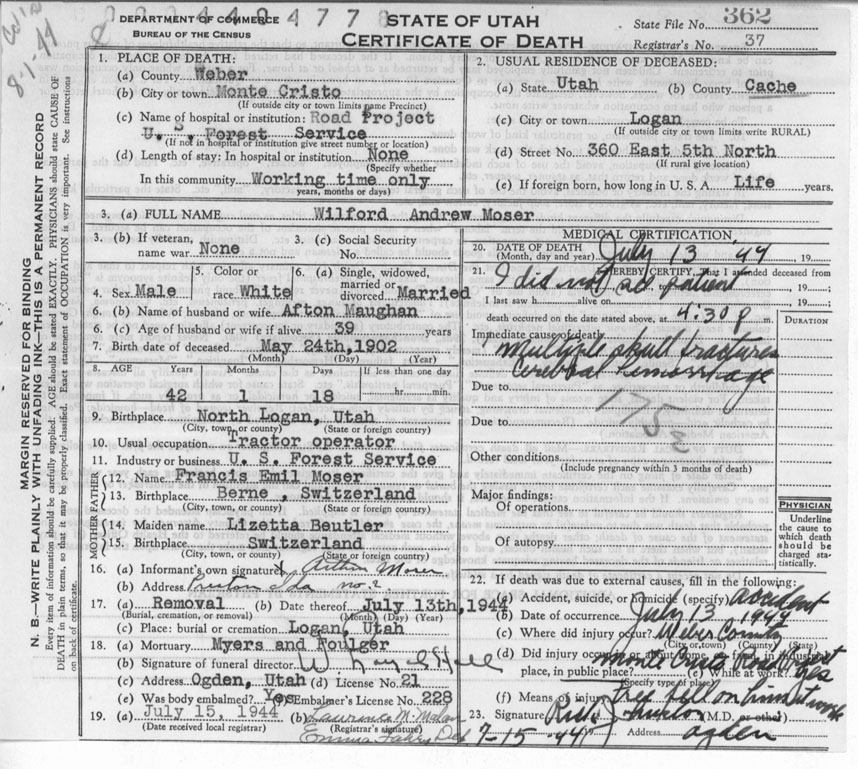 DEPARTMENT OF COMMERCE
BUREAU OF THE CENSUS
STATE OF UTAH
CERTIFICATE OF DEATH
State File No. 362
Registrar's No. 37
8-1-44
MARGIN RESERVED FOR BINDING
N. B.—WRITE PLAINLY WITH UNFADING INK—THIS IS A PERMANENT RECORD
Every item of information should be carefully supplied. AGE should be stated EXACTLY. PHYSICIANS should state CAUSE OF
DEATH in plain terms, so that it may be properly classified. Exact statement of OCCUPATION is very important. See instructions
on back of certificate.
1. PLACE OF DEATH:
(a) County Weber
(b) City or town Monte Cristo
(If outside city or town limits name Precinct)
(c) Name of hospital or institution: Road Project
U. S. Forest Service
(If not in hospital or institution give street number or location)
(d) Length of stay: In hospital or institution None
(Specify whether
In this community Working time only
years, months or days)
2. USUAL RESIDENCE OF DECEASED:
(a) State Utah (b) County Cache
(c) City or town Logan
(If outside city or town limits write RURAL)
(d) Street No. 360 East 5th North
(If rural give location)
(e) If foreign born, how long in U. S. A. Life years.
3. (a) FULL NAME Wilford Andrew Moser
3. (b) If veteran, name war None 3. (c) Social Security No.
4. Sex Male 5. Color or race White 6. (a) Single, widowed, married or divorced Married
6. (b) Name of husband or wife Afton Maughan
6. (c) Age of husband or wife if alive 39 years
7. Birth date of deceased May 24th, 1902
(Month) (Day) (Year)
8. AGE Years Months Days If less than one day
42 1 18 hr. min.
9. Birthplace North Logan, Utah
(City, town, or county) (State or foreign country)
10. Usual occupation Tractor operator
11. Industry or business U. S. Forest Service
FATHER
12. Name Francis Emil Moser
13. Birthplace Berne, Switzerland
(City, town, or county) (State or foreign country)
MOTHER
14. Maiden name Lizetta Beutler
15. Birthplace Switzerland
(City, town, or county) (State or foreign country)
16. (a) Informant's own signature Arthur Moser
(b) Address Preston Ida no. 2
17. (a) Removal (b) Date thereof July 13th, 1944
(Burial, cremation, or removal) (Month) (Day) (Year)
(c) Place: burial or cremation Logan, Utah
18. (a) Mortuary Myers and Foulger
(b) Signature of funeral director
(c) Address Ogden, Utah (d) License No. 21
(e) Was body embalmed? Yes Embalmer's License No. 228
19. (a) July 15, 1944 (b) Laurence M. Malan
(Date received local registrar) (Registrar's signature)
Emma Dep
MEDICAL CERTIFICATION
20. DATE OF DEATH
(Month, day and year) July 13 44, 19
21. I HEREBY CERTIFY, That I attended deceased from
I did not patient
, 19 ;
I last saw h alive on , 19 ;
death occurred on the date stated above, at 4:30 P m.
DURATION
Immediate cause of death
Multiple skull fractures
Cerebral hemorrhage
Due to
175
Due to
Other conditions
(Include pregnancy within 3 months of death)
Major findings:
Of operations
Of autopsy
PHYSICIAN
Underline
the cause to
which death
should be
charged sta-
tistically.
22. If death was due to external causes, fill in the following:
(a) Accident, suicide, or homicide (specify) accident
(b) Date of occurrence July 13 1944
(c) Where did injury occur? Weber County
(City or town) (County) (State)
(d) Did injury occur in or about home, on farm, in industrial
place, in public place? Monte Cristo Road (e) While at work? yes
(Specify type of place)
(f) Means of injury tree fell on him at work
23. Signature (M.D. or other)
7-15-44 Address Ogden